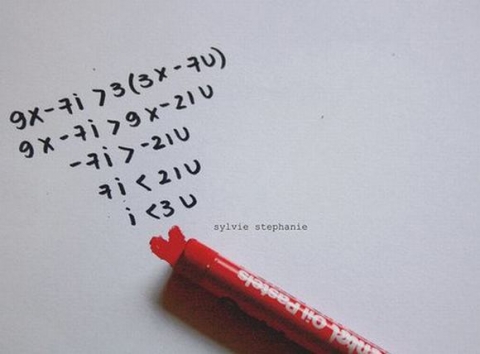 9x-7i > 3(3x-7u)
9x-7i > 9x-21u
-7i > -21u
7i < 21u
i <3 u
sylvie stephanie
Oil Pastels